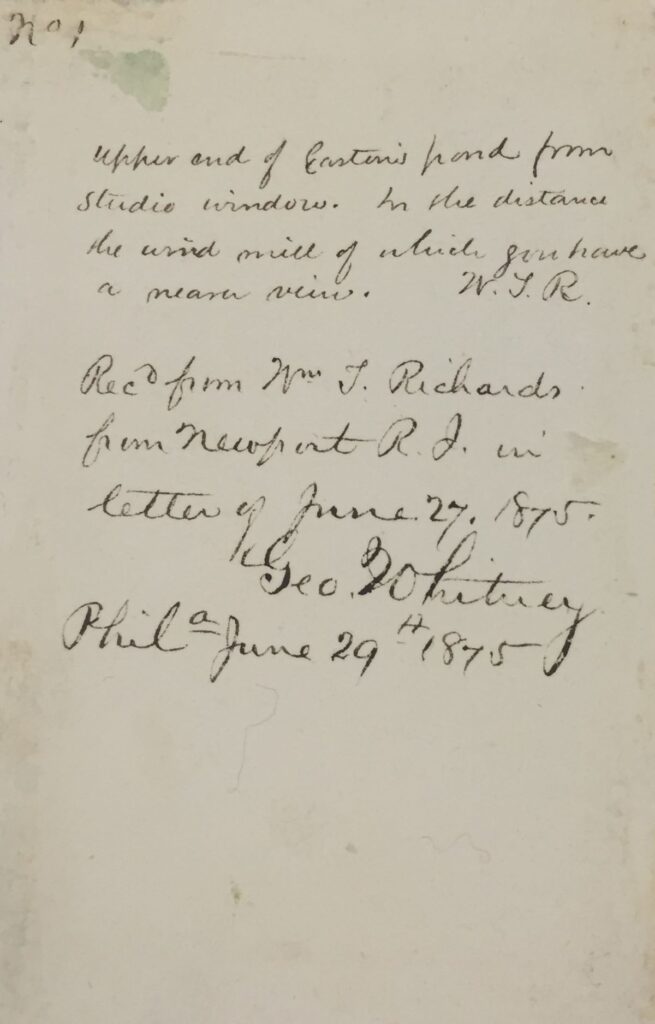 No 1
upper end of Easton's pond from
studio window. In the distance
the wind mill of which you have
a nearer veiw. W. T. R.
Rec'd from Wm T. Richards
from Newport R. I. in
letter of June 27. 1875.
Geo. Whitney
Phila June 29th 1875